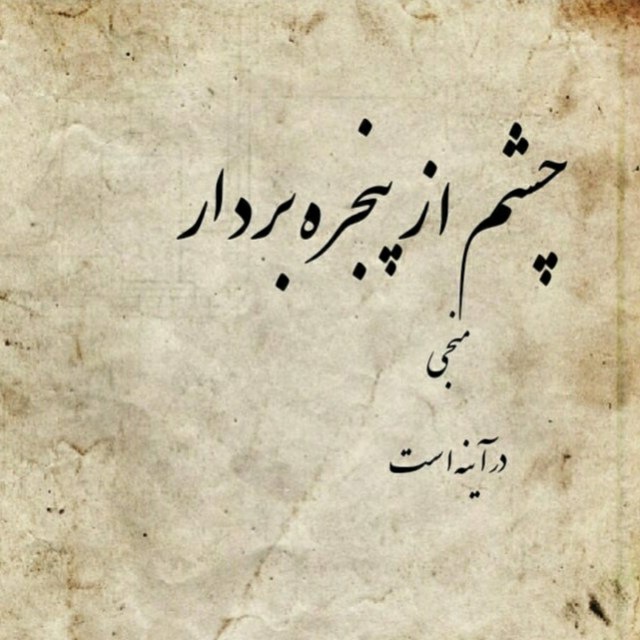 چشم از پنجره بردار
منجی
در آینه است